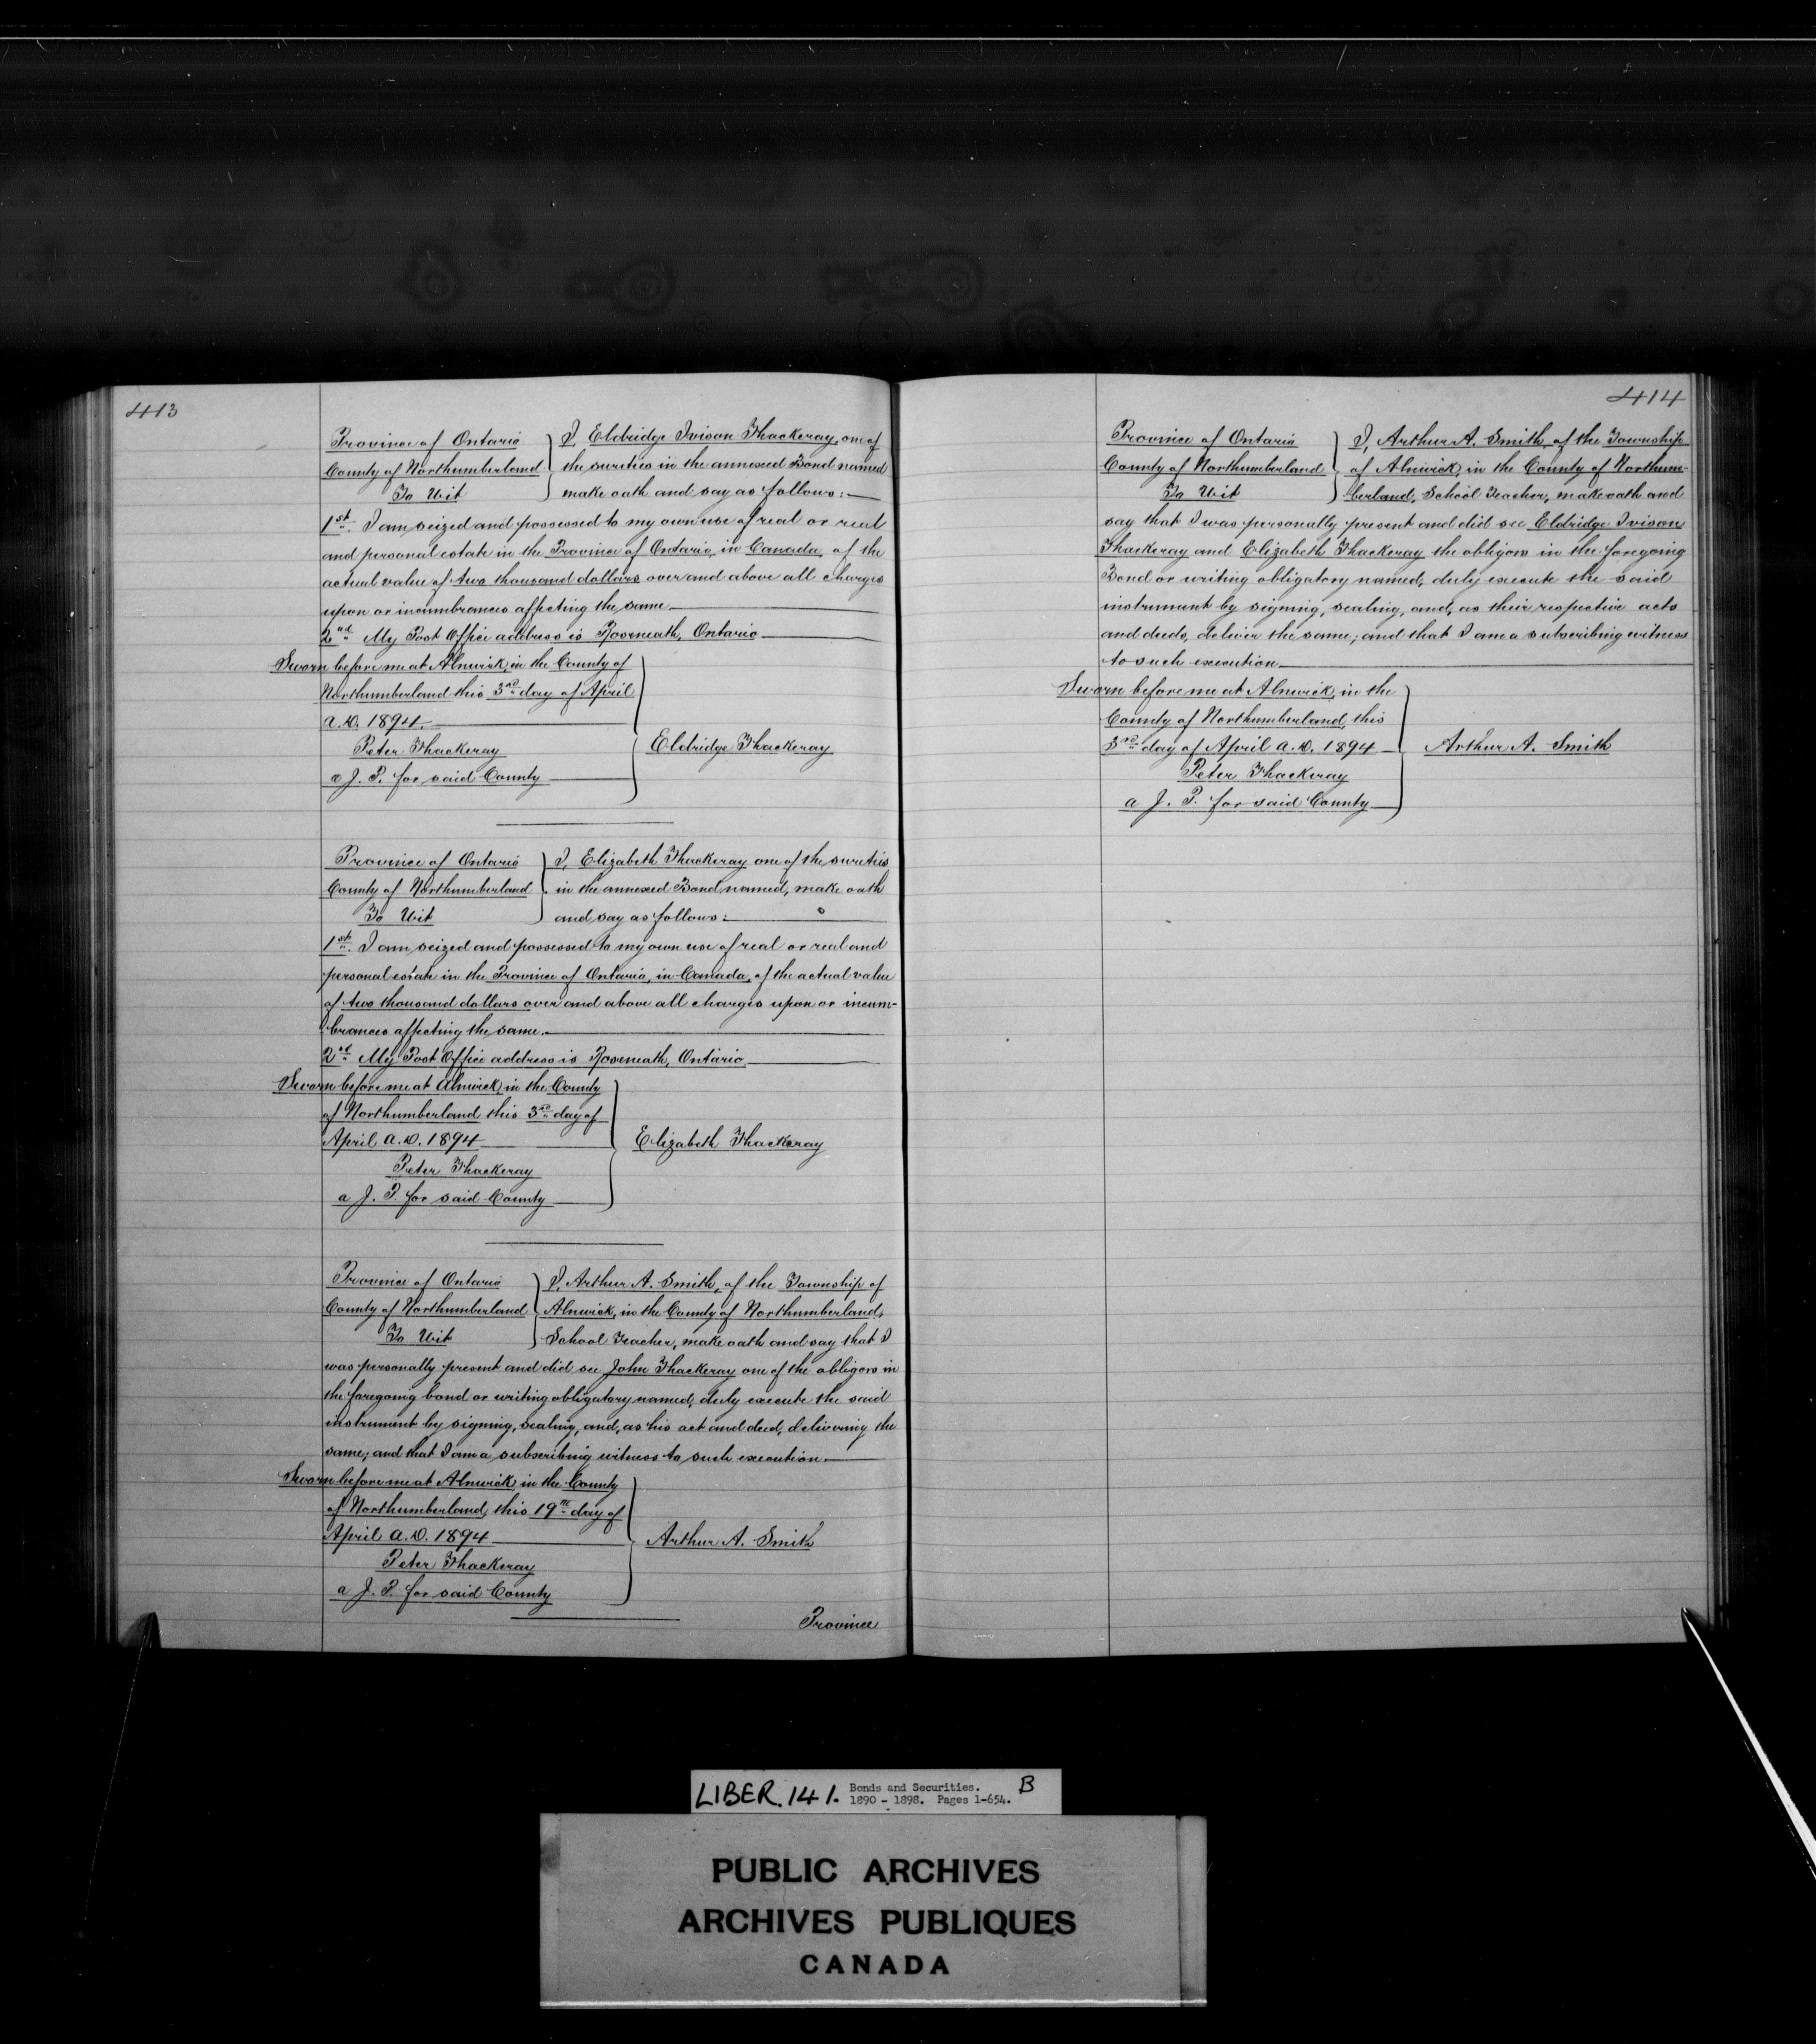 413
Province of Ontario
County of Northumberland
To Wit
I, Eldridge Ivison Thackeray, one of
the sureties in the annexed Bond named
make oath and say as follows:—
1st. I am seized and possessed to my own use of real or real
and personal estate in the Province of Ontario, in Canada, of the
actual value of two thousand dollars over and above all charges
upon or incumbrances affecting the same.
2nd My Post Office address is Roseneath, Ontario
Sworn before me at Alnwick, in the County of
Northumberland this 3rd day of April
A.D. 1894.
Peter Thackeray
a J. P. for said County
Eldridge Thackeray
Province of Ontario
County of Northumberland
To Wit
I, Elizabeth Thackeray one of the sureties
in the annexed Bond named, make oath
and say as follows:
1st. I am seized and possessed to my own use of real or real and
personal estate in the Province of Ontario, in Canada, of the actual value
of two thousand dollars over and above all charges upon or incum-
brances affecting the same.
2nd My Post Office address is Roseneath, Ontario
Sworn before me at Alnwick, in the County
of Northumberland this 3rd day of
April A.D. 1894
Peter Thackeray
a J. P. for said County
Elizabeth Thackeray
Province of Ontario
County of Northumberland
To Wit
I, Arthur A. Smith, of the Township of
Alnwick, in the County of Northumberland,
School Teacher, make oath and say that I
was personally present and did see John Thackeray one of the obligors in
the foregoing bond or writing obligatory named, duly execute the said
instrument by signing, sealing, and, as his act and deed, delivering the
same; and that I am a subscribing witness to such execution.
Sworn before me at Alnwick, in the County
of Northumberland, this 19th day of
April A.D. 1894
Peter Thackeray
a J. P. for said County
Arthur A. Smith
Province
414
Province of Ontario
County of Northumberland
To Wit
I, Arthur A. Smith, of the Township
of Alnwick, in the County of Northum-
berland, School Teacher, make oath and
say that I was personally present and did see Eldridge Ivison
Thackeray and Elizabeth Thackeray the obligors in the foregoing
Bond or writing obligatory named, duly execute the said
instrument by signing, sealing, and, as their respective acts
and deeds, deliver the same; and that I am a subscribing witness
to such execution
Sworn before me at Alnwick, in the
County of Northumberland, this
3rd day of April A.D. 1894
Peter Thackeray
a J. P. for said County
Arthur A. Smith
LIBER. 141. Bonds and Securities. B
1890 - 1898. Pages 1-654.
PUBLIC ARCHIVES
ARCHIVES PUBLIQUES
CANADA